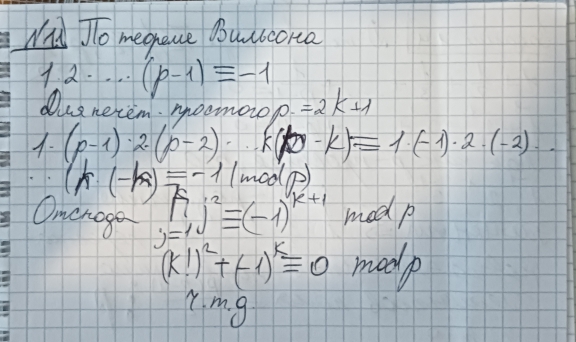 N11. По теореме Вильсона
1·2·...·(p-1)≡-1
Для нечёт. простого p.=2k+1
1·(p-1)·2·(p-2)·...k(p-k)≡1·(-1)·2·(-2)...
..(k·(-k)≡-1(mod p)
Отсюда ∏_{j=1}^{k} j²≡(-1)^{k+1} mod p
(k!)²+(-1)^k≡0 mod p
ч.т.д.